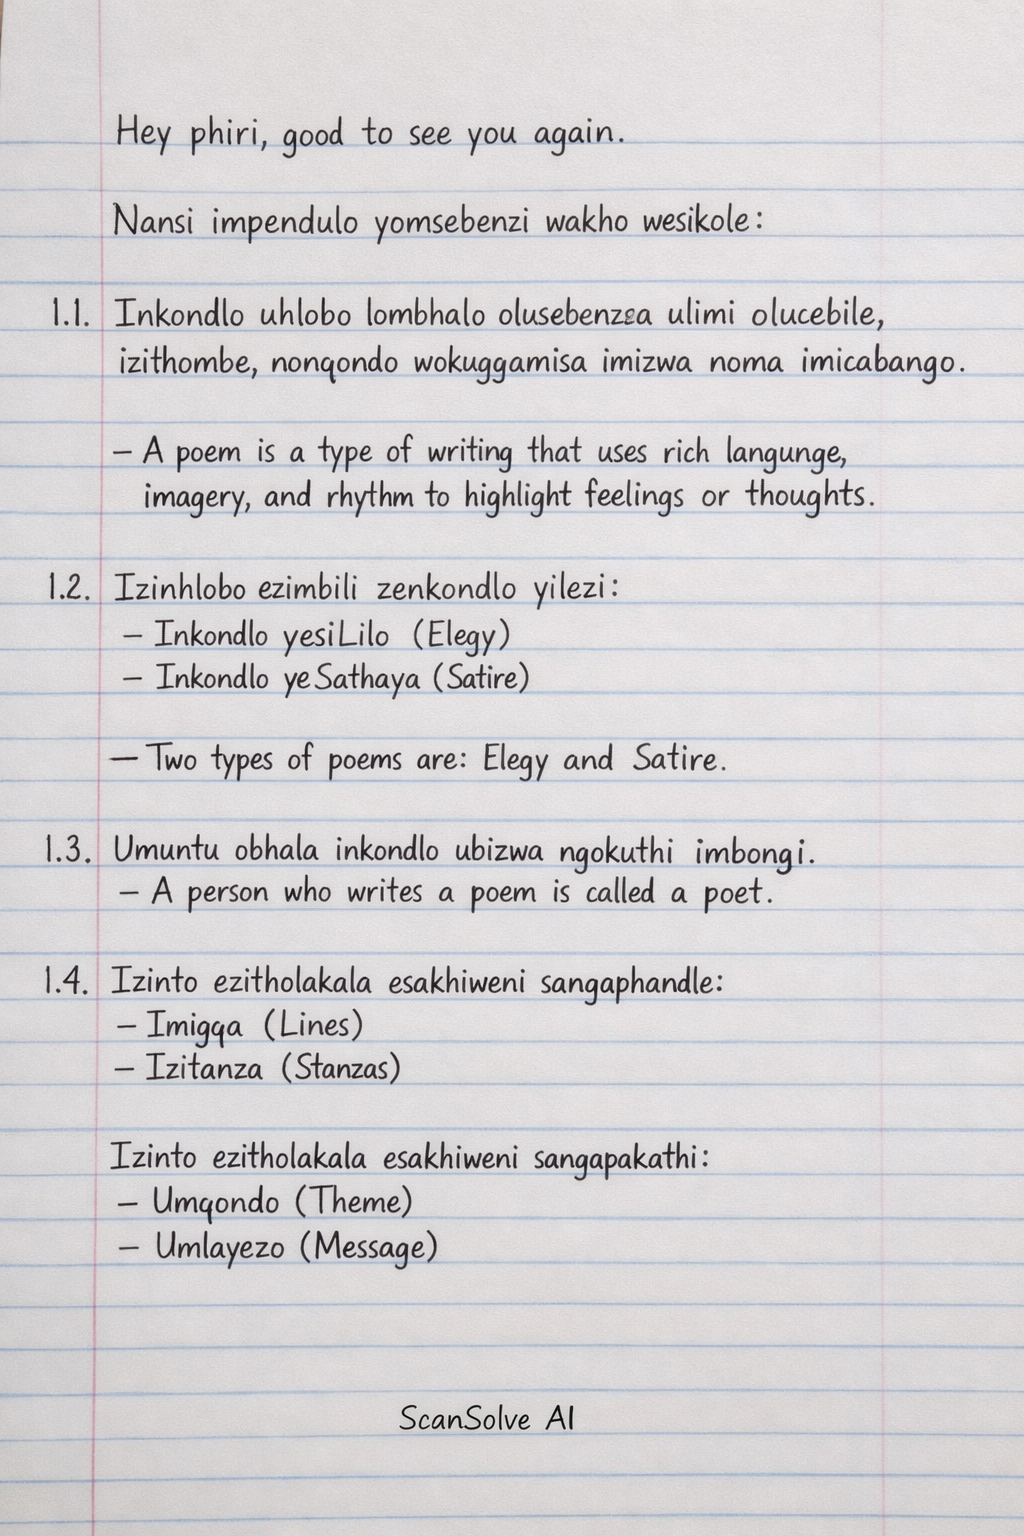 Hey phiri, good to see you again.
Nansi impendulo yomsebenzi wakho wesikole:
1.1. Inkondlo uhlobo lombhalo olusebenzsa ulimi olucebile,
izithombe, nonqondo wokuggamisa imizwa noma imicabango.
– A poem is a type of writing that uses rich langunge,
imagery, and rhythm to highlight feelings or thoughts.
1.2. Izinhlobo ezimbili zenkondlo yilezi:
– Inkondlo yesiLilo (Elegy)
– Inkondlo yeSathaya (Satire)
– Two types of poems are: Elegy and Satire.
1.3. Umuntu obhala inkondlo ubizwa ngokuthi imbongi.
– A person who writes a poem is called a poet.
1.4. Izinto ezitholakala esakhiweni sangaphandle:
– Imigqa (Lines)
– Izitanza (Stanzas)
Izinto ezitholakala esakhiweni sangapakathi:
– Umqondo (Theme)
– Umlayezo (Message)
ScanSolve AI